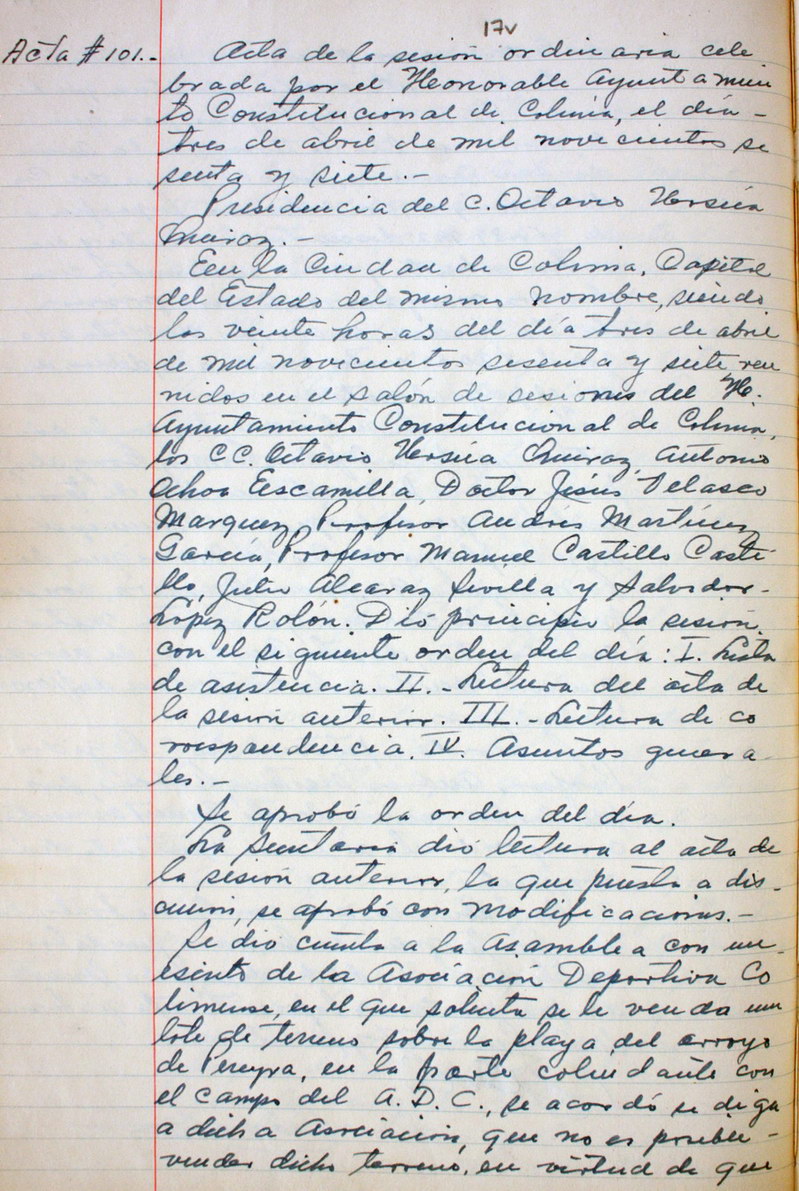 17v
Acta # 101.- Acta de la sesión ordinaria cele
brada por el Honorable Ayuntamien
to Constitucional de Colima, el día -
tres de abril de mil novecientos se
senta y siete.-
Presidencia del C. Octavio Ursúa
Quiroz.-
En la Ciudad de Colima, Capital
del Estado del mismo nombre, siendo
las veinte horas del día tres de abril
de mil novecientos sesenta y siete, reu
nidos en el salón de sesiones del H.
Ayuntamiento Constitucional de Colima,
los CC. Octavio Ursúa Quiroz, Antonio
Ochoa Escamilla, Doctor Jesús Velasco
Marquez, Profesor Andrés Martínez
García, Profesor Manuel Castillo Casti-
llo, Julio Alcaraz Sevilla y Salvador -
López Rolón. Dió principio la sesión
con el siguiente orden del día: I. Lista
de asistencia. II.- Lectura del acta de
la sesión anterior. III.- Lectura de co
rrespondencia. IV. Asuntos genera-
les.-
Se aprobó la orden del día.
La secretaria dió lectura al acta de
la sesión anterior, la que puesta a dis-
cusión, se aprobó con modificaciones.-
Se dió cuenta a la Asamblea con un
escrito de la Asociación Deportiva Co
limense, en el que solicita se le venda un
lote de terreno sobre la playa del arroyo
de Pereyra, en la parte colindante con
el campo del A.D.C., se acordó se diga
a dicha Asociación, que no es posible -
vender dicho terreno, en virtud de que